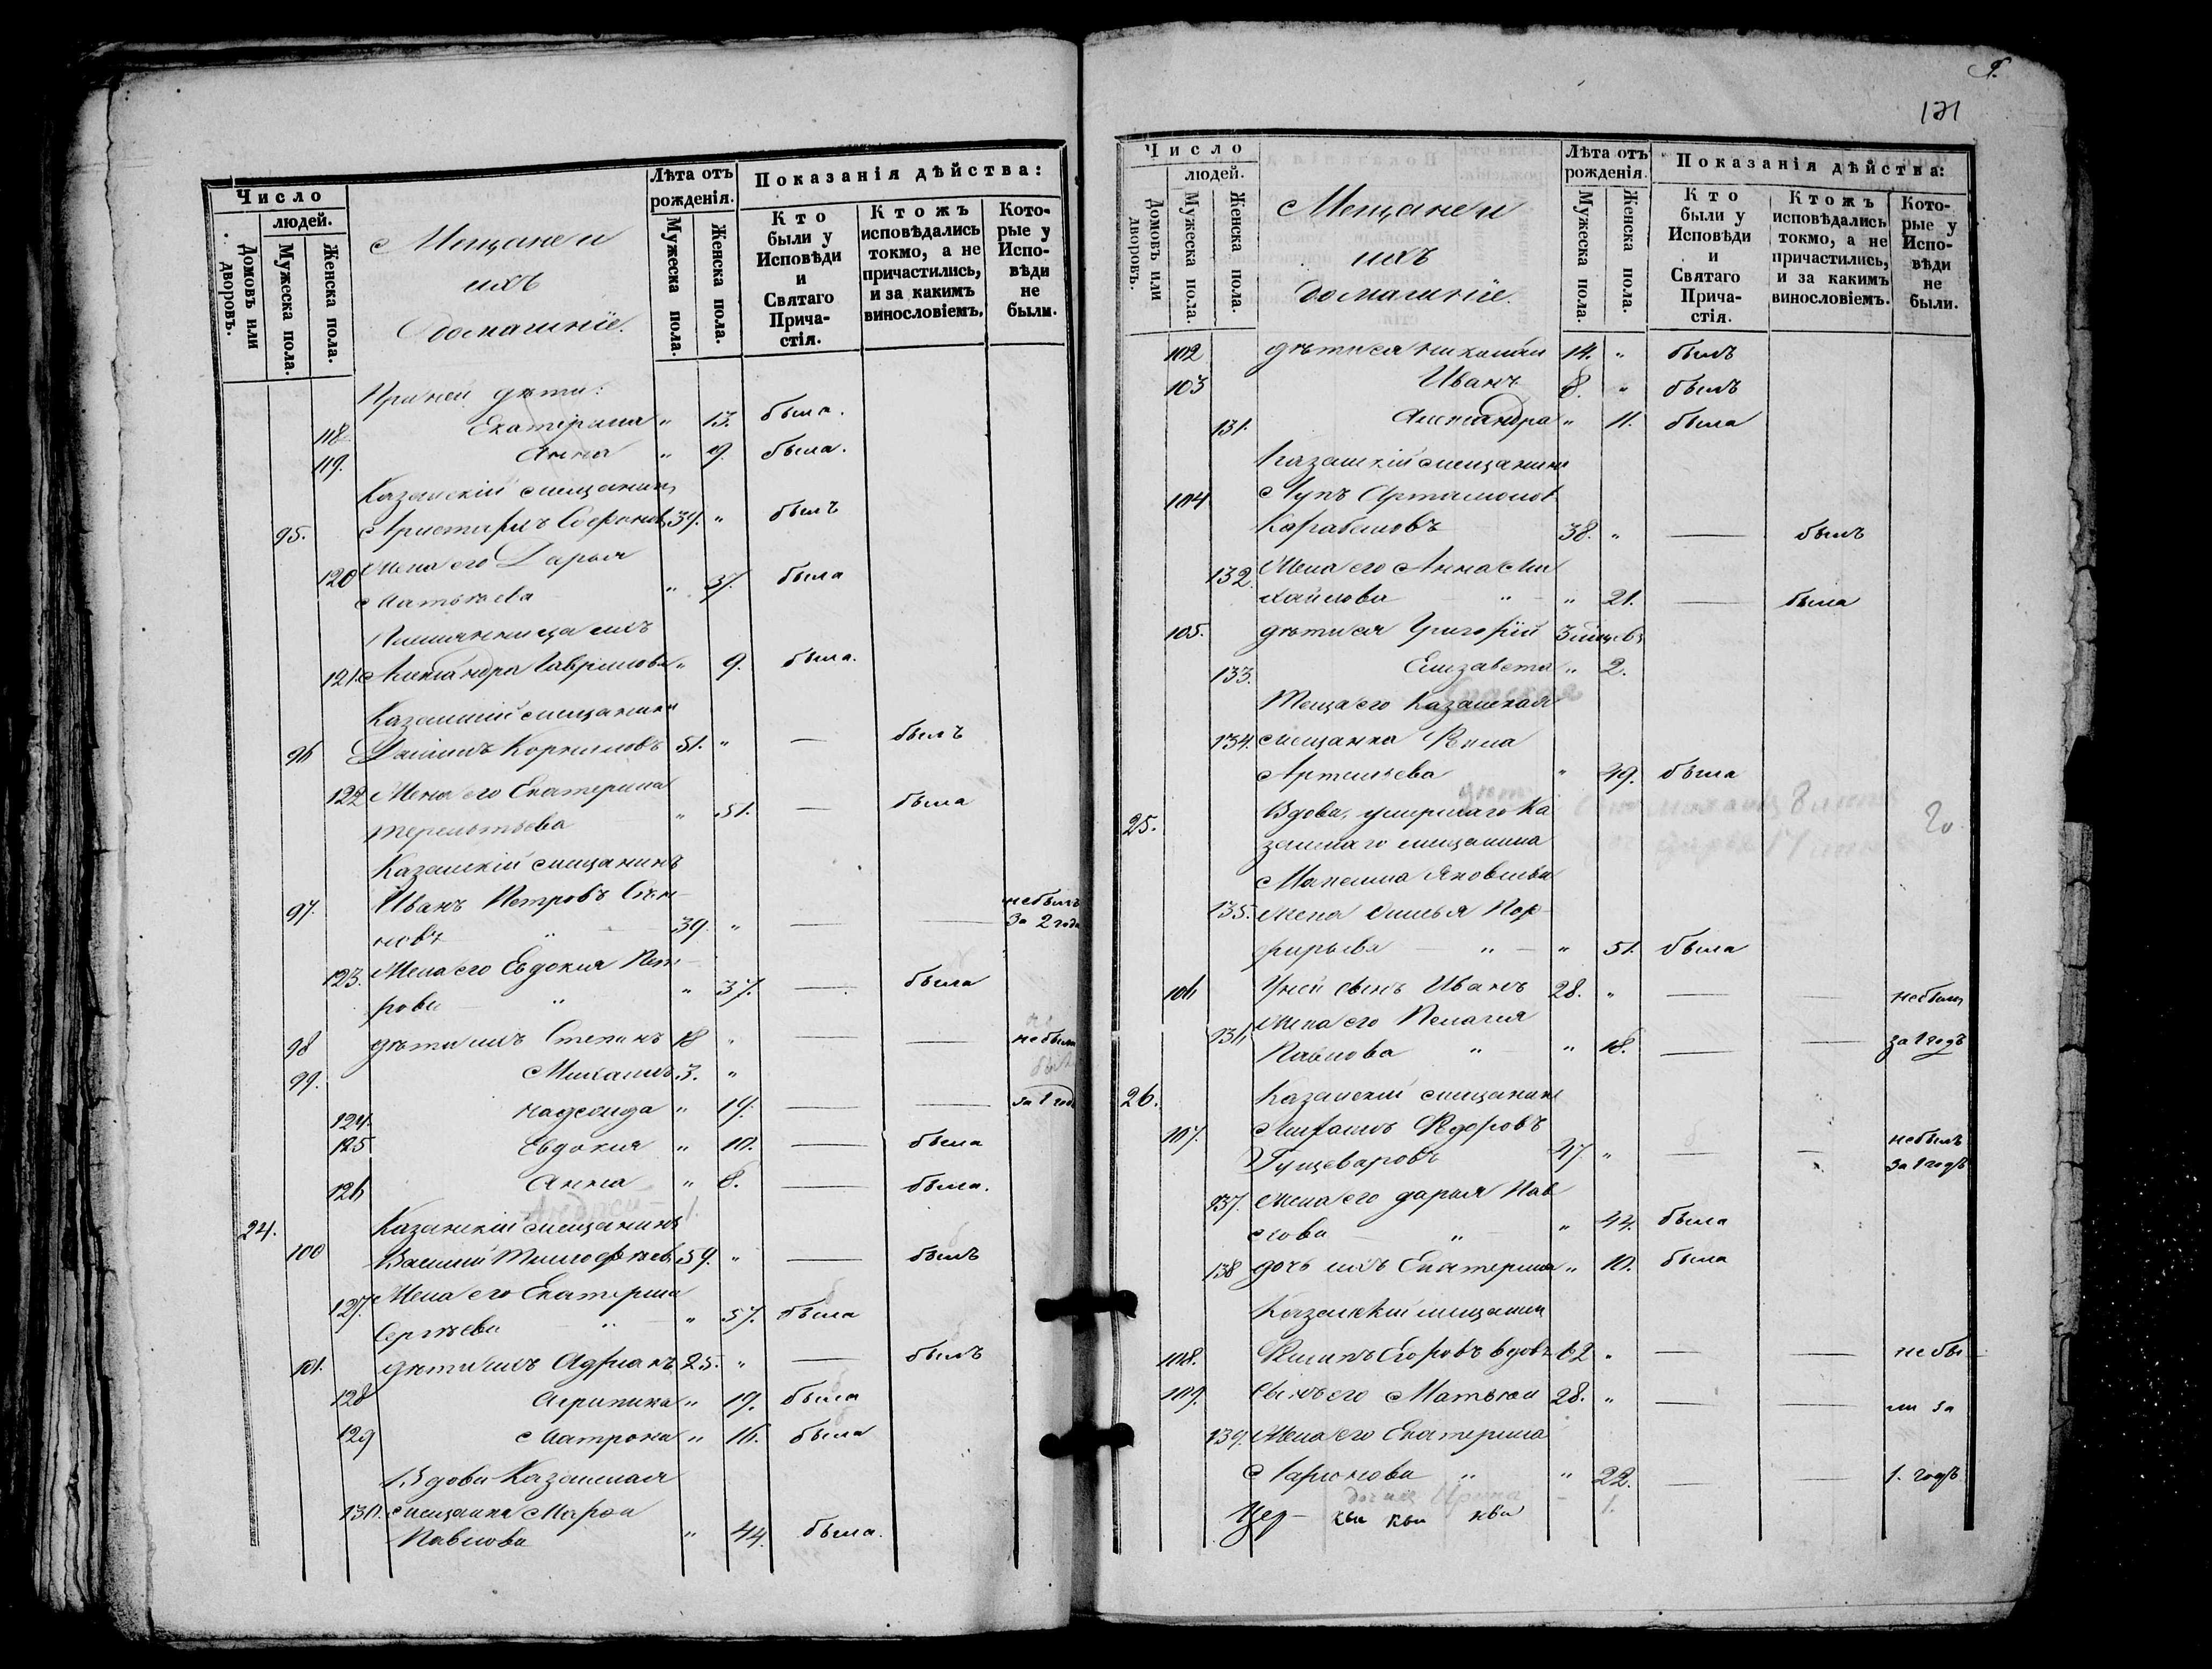 Число
людей.
Домовъ или дворовъ.
Мужеска пола.
Женска пола.
Мещане и
ихъ
домашніе.
Лѣта отъ
рожденія.
Мужеска пола.
Женска пола.
Показанія дѣйства:
Кто
были у
Исповѣди
и
Святаго
Прича-
стія.
Ктожъ
исповѣдались
токмо, а не
причастились,
и за какимъ
винословіемъ.
Кото-
рые у
Испо-
вѣди
не
были.
дѣти:
118 Екатерина " 13. была.
119. Анна " 9. была.
Казанскій мещанинъ
95. Аристархъ 39. " былъ
120 Жена его Дарья
Матвѣева " 37. была
Племянница ихъ
121. Александра Гаврилова " 9. была.
Казанскій мещанинъ
96 Даніилъ Корниловъ 51. " — былъ
122 Жена его Екатерина
Терентьева " 51. — была
Казанскій мещанинъ
97. Иванъ Петровъ 39. " — — небылъ
За 2 года
123. Жена его Евдокия Пет-
рова " " 37. — была
98 дѣти ихъ Степанъ 18 " — — небыли
99. Михаилъ 3. "
124. Надежда " 19. — — за 1 годъ
125 Евдокия " 10. — была
126 Анна " 8. — была.
Андрей — 1.
24. Казанскій мещанинъ
100 Василий Тимофѣевъ 59. " — былъ
127. Жена его Екатерина
Сергѣева " " 57. была
101. дѣти ихъ Адрианъ 25. " — былъ
128 Агрипина " 19. была
129 Матрона " 16. была
Вдова Казанская
130. мещанка Марфа
Павлова " 44. была.
121
Число
людей.
Домовъ или дворовъ.
Мужеска пола.
Женска пола.
Мещане и
ихъ
домашніе.
Лѣта отъ
рожденія.
Мужеска пола.
Женска пола.
Показанія дѣйства:
Кто
были у
Исповѣди
и
Святаго
Прича-
стія.
Ктожъ
исповѣдались
токмо, а не
причастились,
и за какимъ
винословіемъ.
Кото-
рые у
Испо-
вѣди
не
были.
102 дѣти ея Николай 14. " былъ
103 Иванъ 8. " былъ
131. Александра " 11. была
Казанскій мещанинъ
104 Лупъ Артамонов
38. " — былъ
132. Жена его Анна Ми
хайлова " " 21. — была
105. дѣти ея Григорій
133. Елизавета " 2.
Теща его Казанская
134. мещанка
Артемьева " 49. была
25. Вдова, умершаго Ка
занскаго мещанина
Максима Яковлева
135. жена Пор
фирьева — " — " 51. была
106 У ней сынъ Иванъ 28. " — — небыли
136 Жена его Пелагия
Павлова " " 18. — — за 1 годъ
26. Казанскій мещанинъ
107. Ѳедоровъ
47. " — — небылъ
за 1 годъ
137. Жена его дарья Пав
лова " " 44. была
138 дочь ихъ Екатерина " 10. была
Казанскій мещанин
108. Филипъ Егоровъ вдовъ 62 " — — небы
109. Сынъ его Матвѣй 28. " — — ли за
139. Жена его Екатерина
Ларионова " " 22. — — 1. годъ
дочь ихъ Ирина — 1.
Цер- кви кви кви